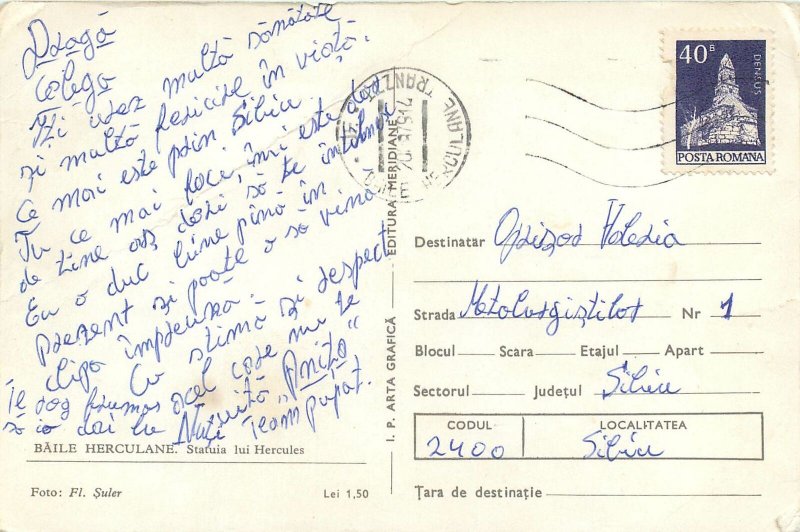 Dragă
Colega
Îți urez multă sănătate
și multă fericire în viață.
Ce mai este prin Sibiu
Tu ce mai faci, îmi este dor
de tine aș dori să te întîlnesc
Eu o duc bine pînă în
prezent și poate o să vină
clipa împreună.
Cu stimă și respect
acel care nu te
uită "Aniță"
Te rog frumos
să io dai lu Nuți Team pupat.
BĂILE HERCULANE. Statuia lui Hercules
Foto: Fl. Șuler
Lei 1,50
I. P. ARTA GRAFICĂ — EDITURA MERIDIANE
TRANZIT
40 B
DENSUS
POSTA ROMANA
Destinatar Oprisor Valeria
Strada Metalurgiștilor Nr 1
Blocul Scara Etajul Apart
Sectorul Județul Sibiu
CODUL
2400
LOCALITATEA
Sibiu
Țara de destinație